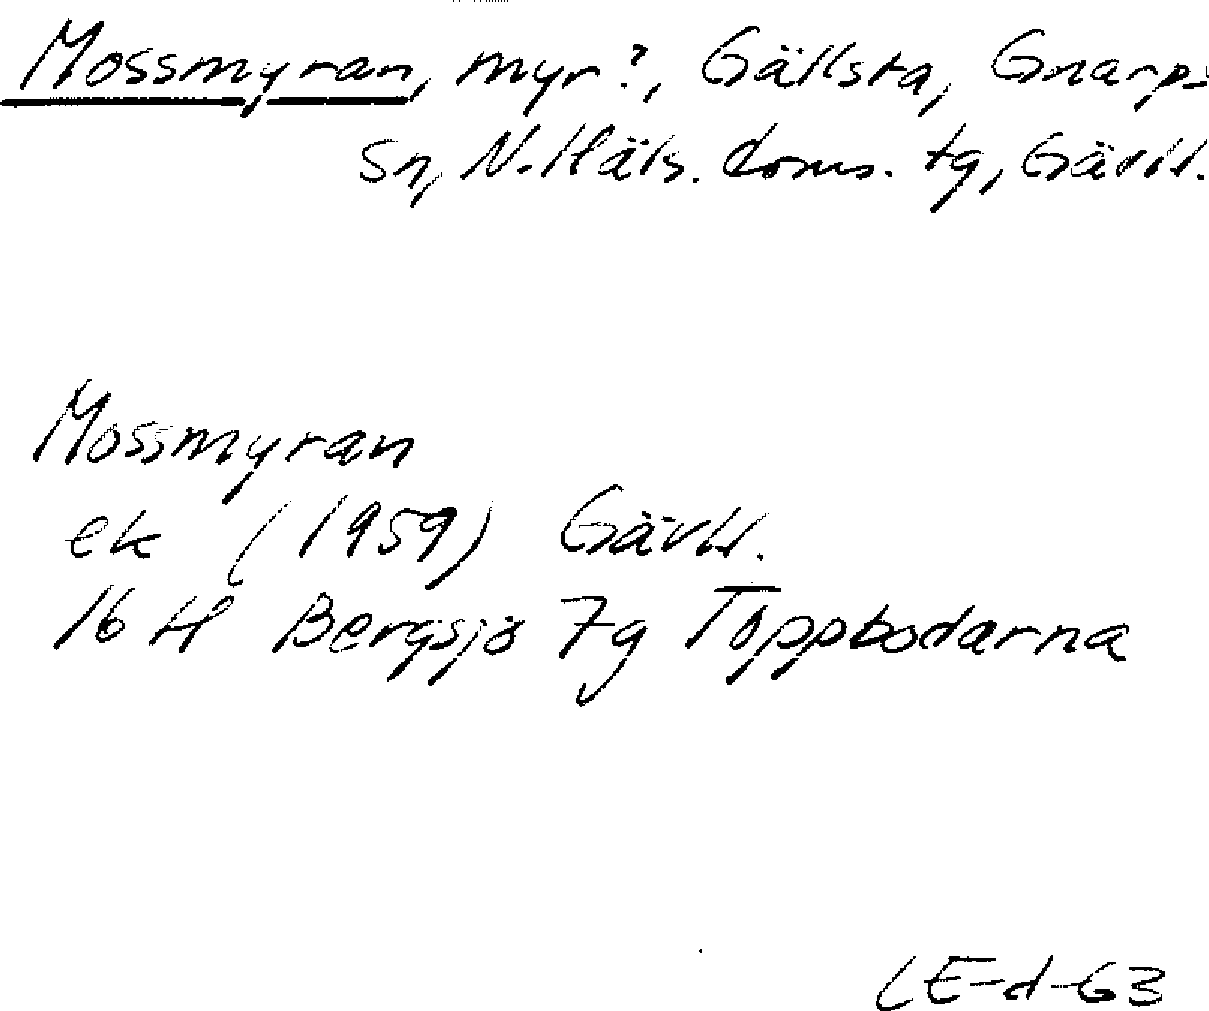 Mossmyran, myr?, Gällsta, Gnarps
sn, N. Häls. doms. tg, Gävlel.
Mossmyran
ek (1959) Gävlel.
16 H Bergsjö 7g Toppbodarna
LE-d-63